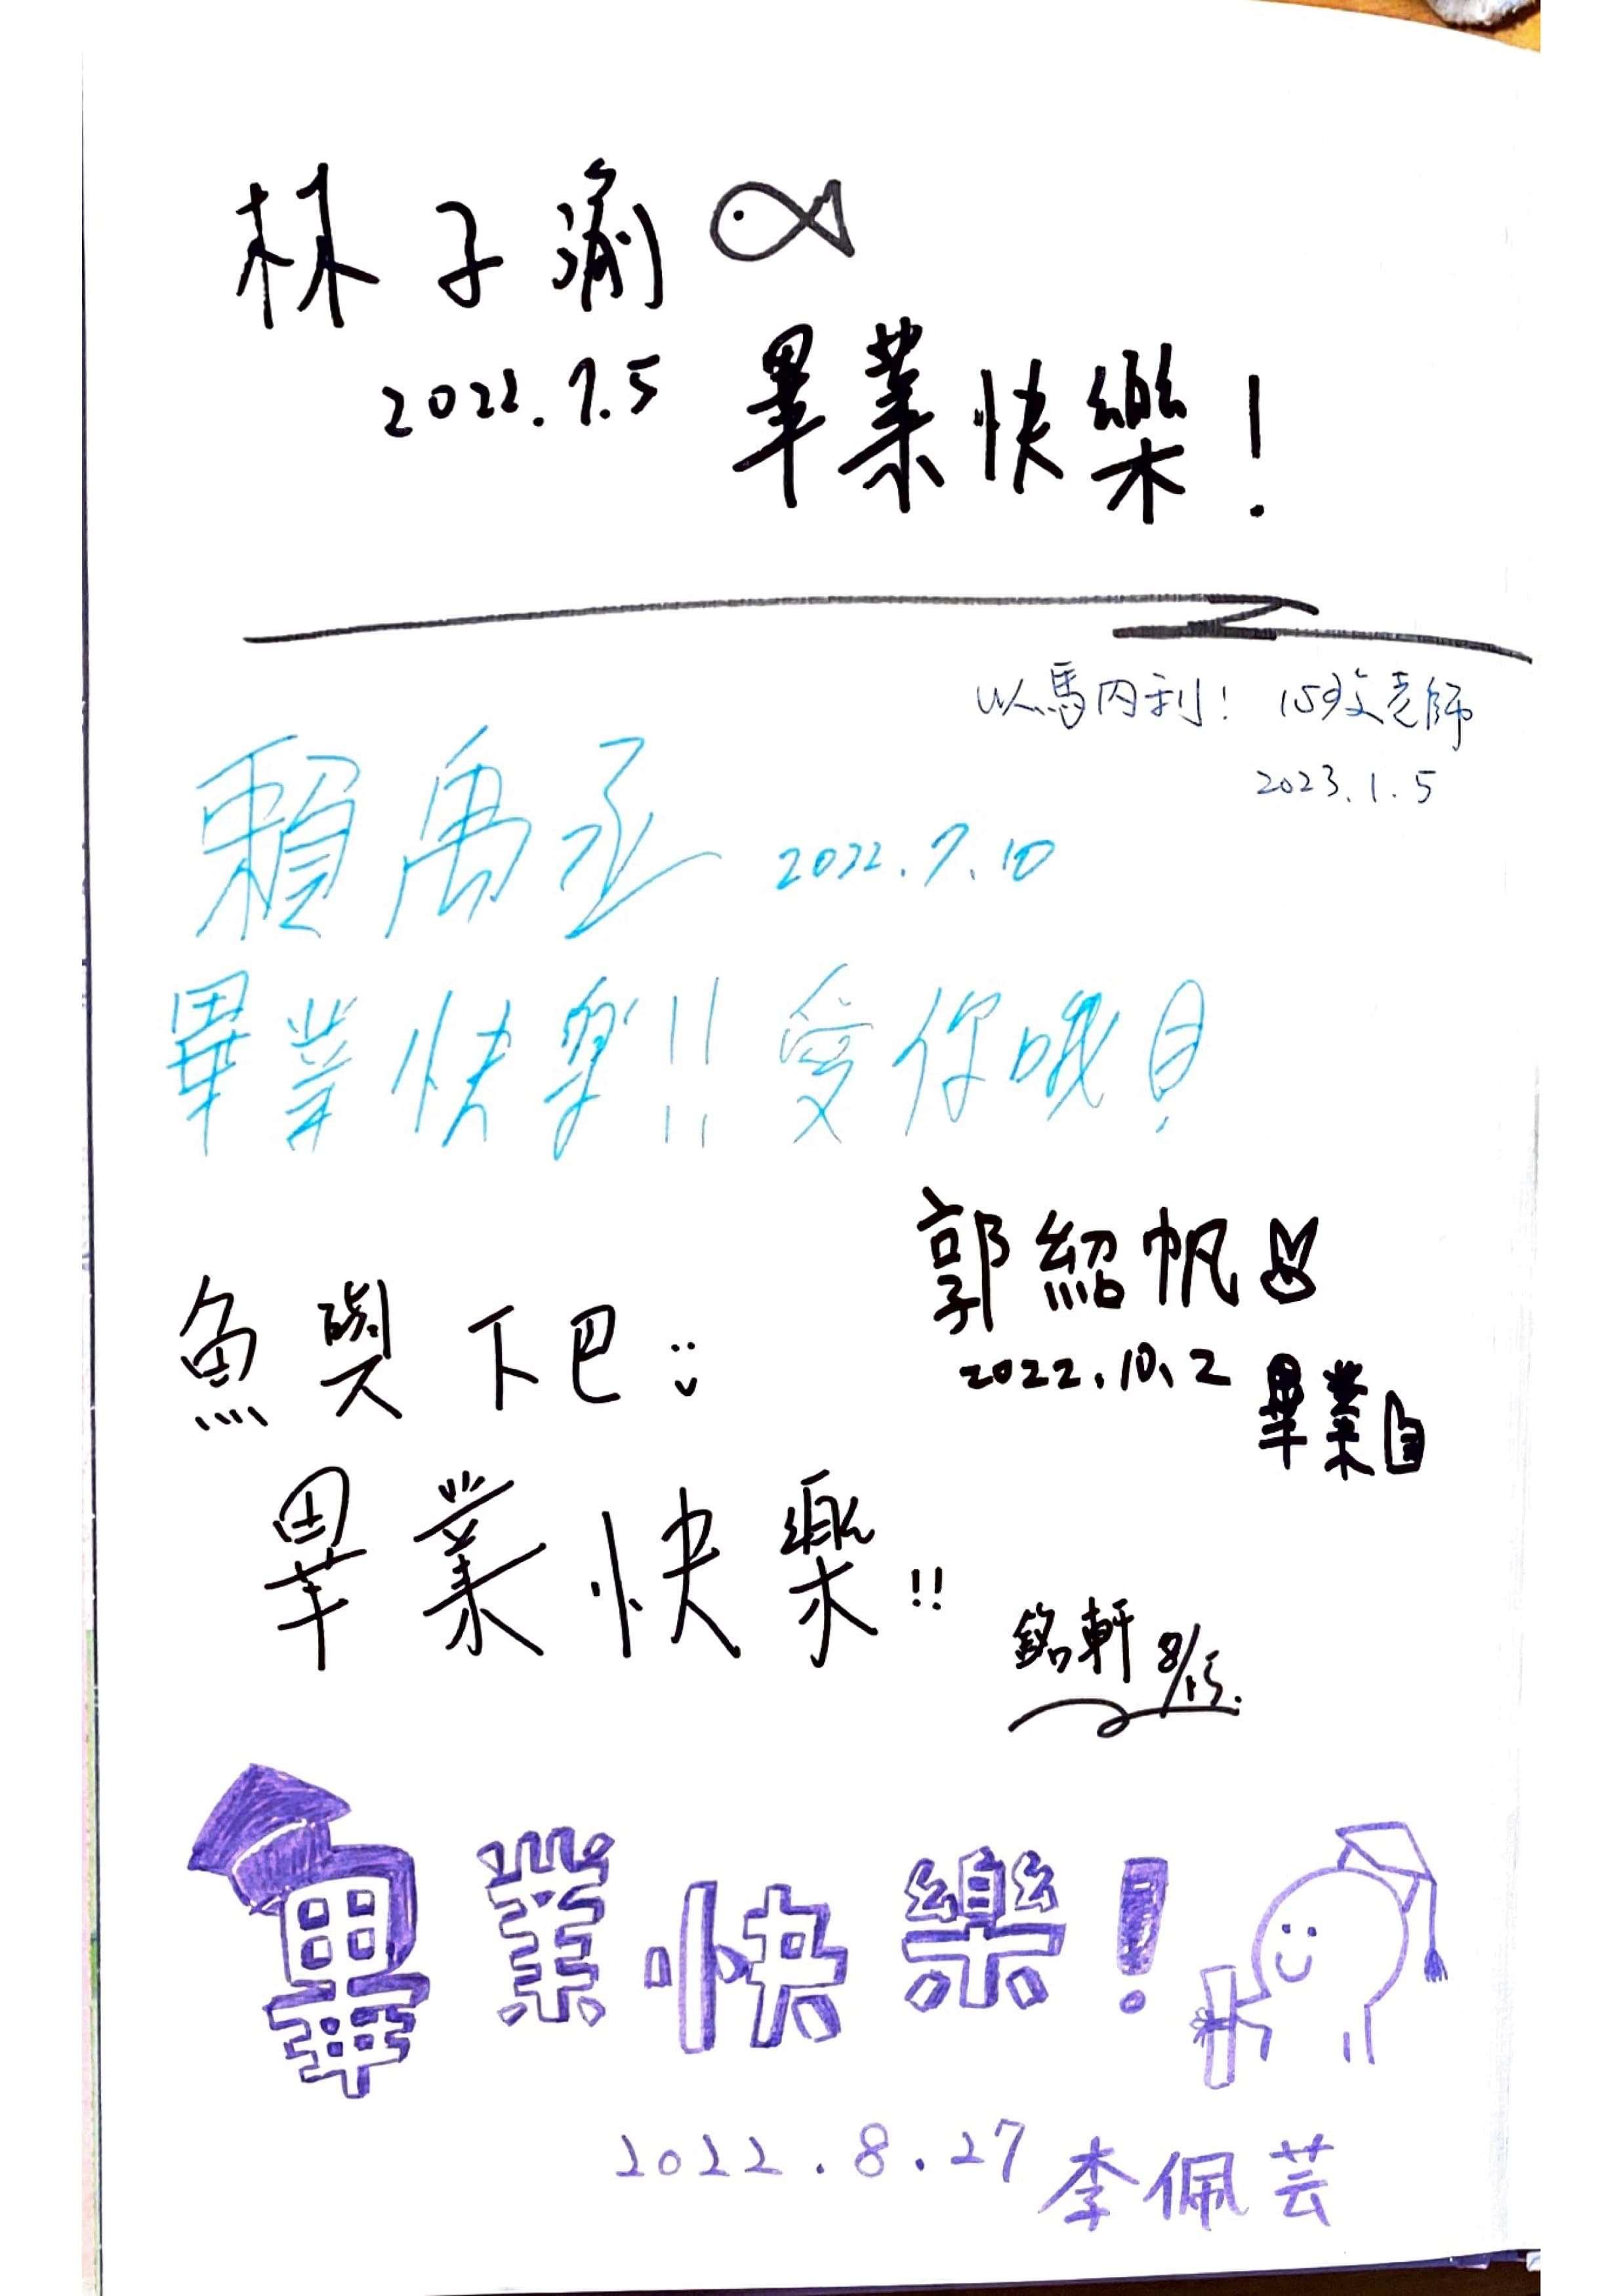 林子瀹
2022.7.5 畢業快樂！
以馬內利！ 老師
2023.1.5
賴禹丞 2022.7.10
畢業快樂!! 愛你哦
郭紹帆
2022.10.2 畢業
魚與下巴
畢業快樂!!
銘軒 8/15.
畢業快樂！
2022.8.27 李佩芸